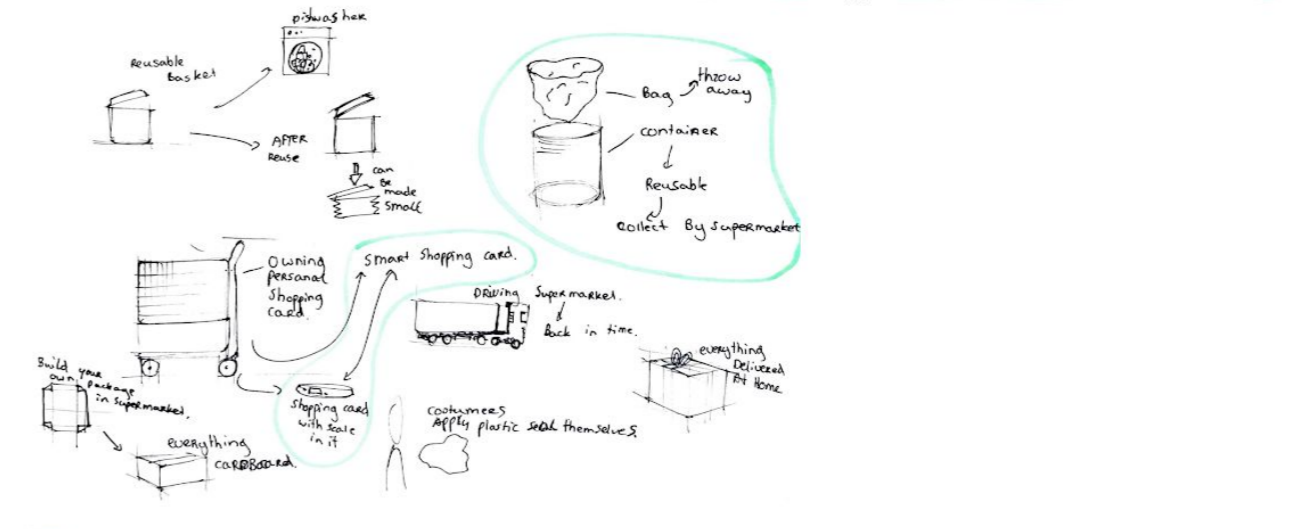 Diswasher
Reusable
Basket
AFTER
Reuse
can
Be
made
small
Bag
throw
away
container
Reusable
collect By supermarket
owning
personal
shopping
card.
smart shopping card.
Driving Supermarket.
Back in time.
everything
Delivered
At Home
Build your
own package
in supermarket.
everything
cardboard.
shopping card
with scale
in it
costumers
Apply plastic themselves.